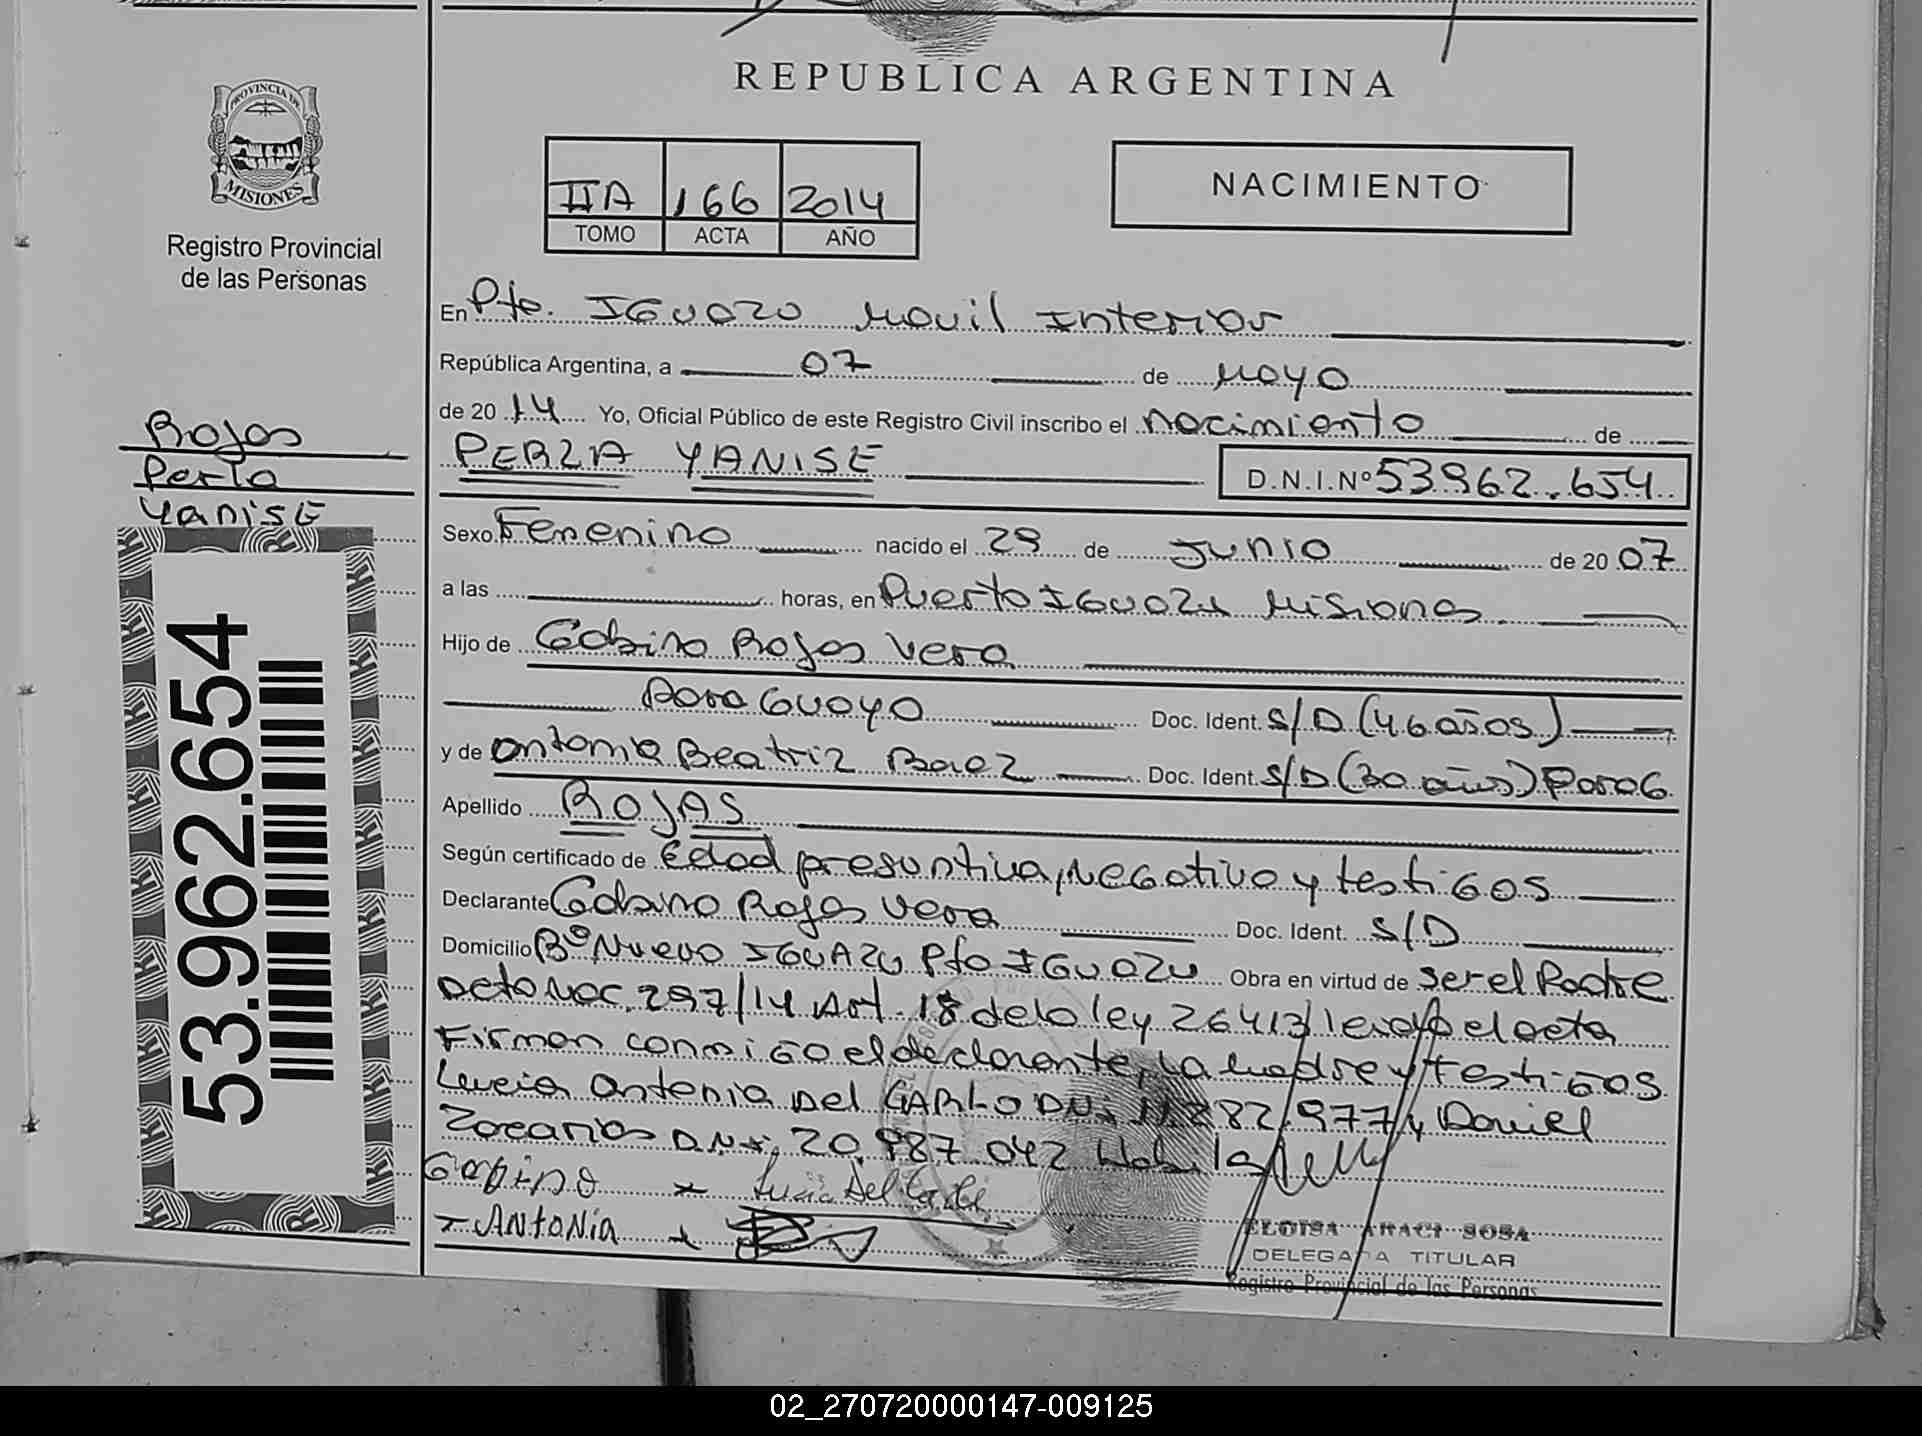 REPUBLICA ARGENTINA
PROVINCIA DE
MISIONES
Registro Provincial
de las Personas
IIA 166 2014
TOMO ACTA AÑO
NACIMIENTO
En Pto. Iguazu Movil Interior
República Argentina, a 07 de Mayo
de 20 14 Yo, Oficial Público de este Registro Civil inscribo el nacimiento de
PERLA YANISE D.N.I.Nº 53962.654
Rojas
Perla
Yanise
53.962.654
Sexo Femenino nacido el 29 de Junio de 20 07
a las horas, en Puerto Iguazu Misiones
Hijo de Gabino Rojas Vera
Paraguayo Doc. Ident. S/D (46 años)
y de Antonia Beatriz Baez Doc. Ident. S/D (30 años) Parag.
Apellido ROJAS
Según certificado de Edad presuntiva, Negativo y testigos
Declarante Gabino Rojas Vera Doc. Ident. S/D
Domicilio Bº Nuevo Iguazu Pto Iguazu Obra en virtud de ser el Padre
Dcto Nac. 297/14 Art. 18 de la ley 26413 leida el acta
Firman conmigo el declarante, la madre y testigos
Lucia Antonia Del GARLO DNI 11.882.977 y Daniel
Zacarias D.N.I. 20.987.042
Gabino x Lucia Del
x Antonia x
ELOISA ARACI SOSA
DELEGADA TITULAR
Registro Provincial de las Personas
02_270720000147-009125